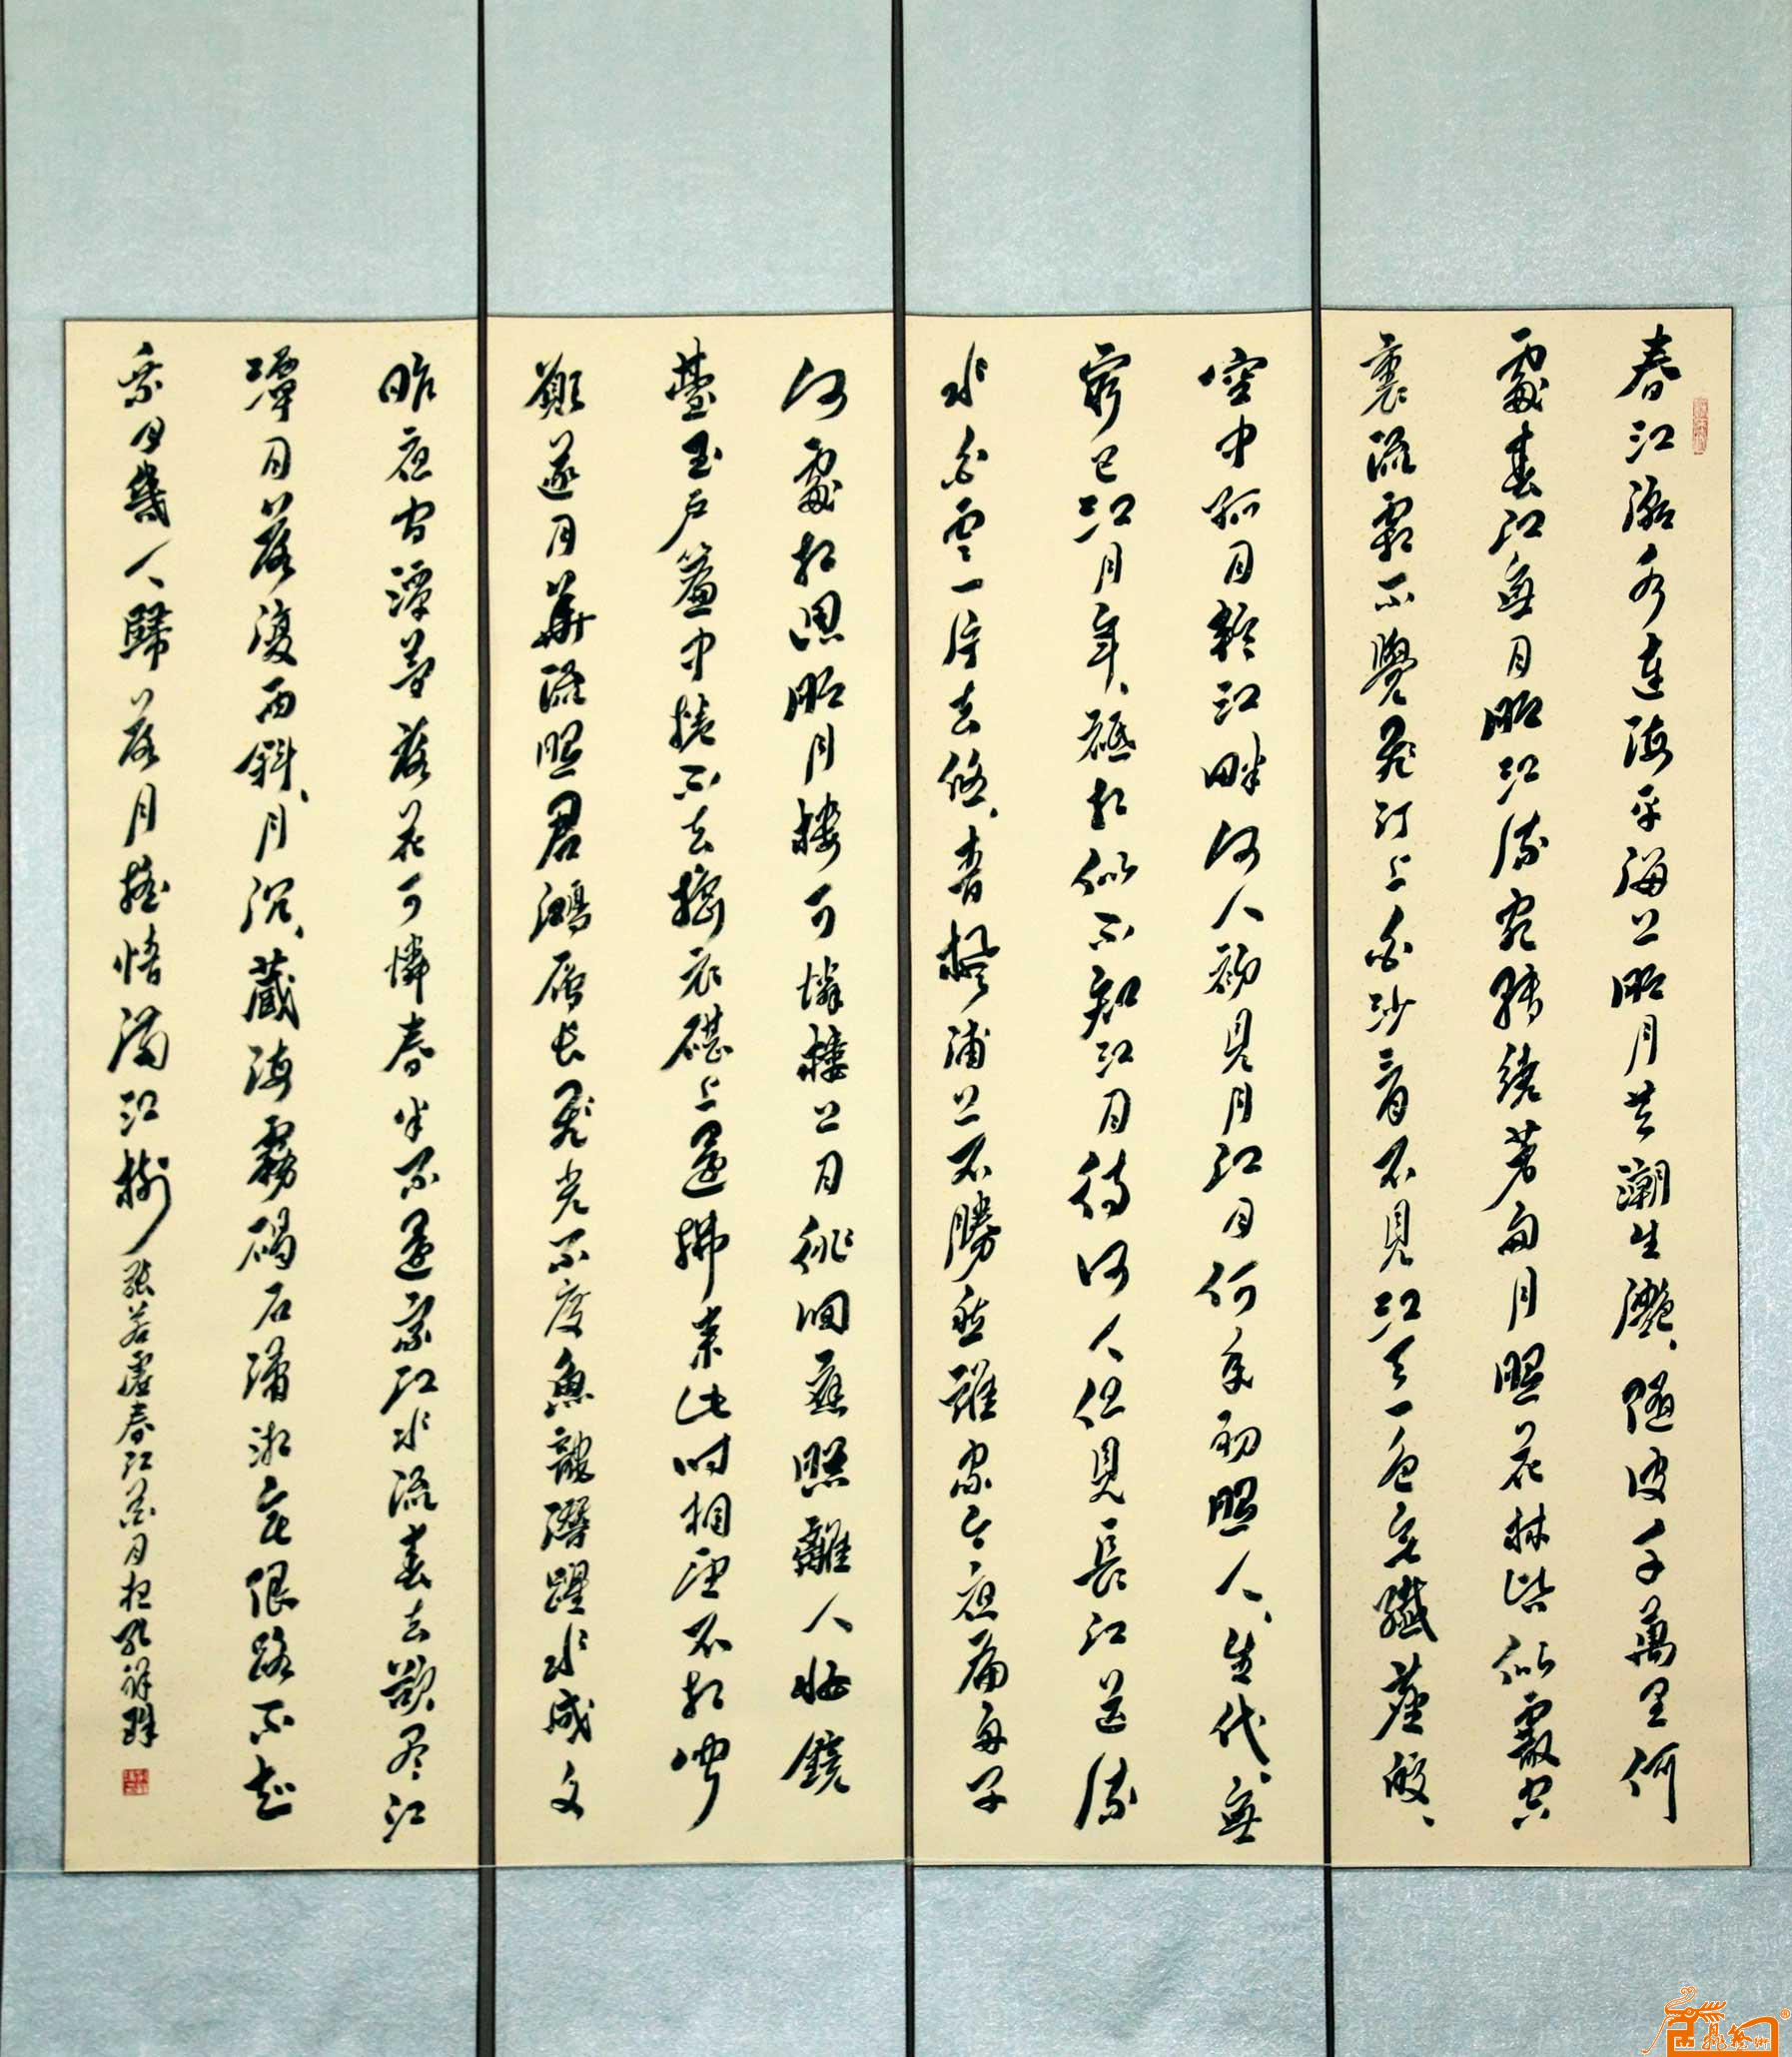 春江潮水連海平海上明月共潮生灩、隨波千萬里何
處春江無月明江流宛轉繞芳甸月照花林皆似霰空
裏流霜不覺飛汀上白沙看不見江天一色無纖塵皎、
空中孤月輪江畔何人初見月江月何年初照人、生代、無
窮已江月年、祗相似不知江月待何人但見長江送流
水白雲一片去悠、青楓浦上不勝愁誰家今夜扁舟子
何處相思明月樓可憐樓上月徘徊應照離人妝鏡
臺玉戶簾中捲不去搗衣碪上還拂來此時相望不相聞
願逐月華流照君鴻雁長飛光不度魚龍潛躍水成文
昨夜閑潭夢落花可憐春半不還家江水流春去欲盡江
潭月落復西斜、月沉、藏海霧碣石瀟湘無限路不知
乘月幾人歸落月搖情滿江樹 張若虛春江花月夜孔祥